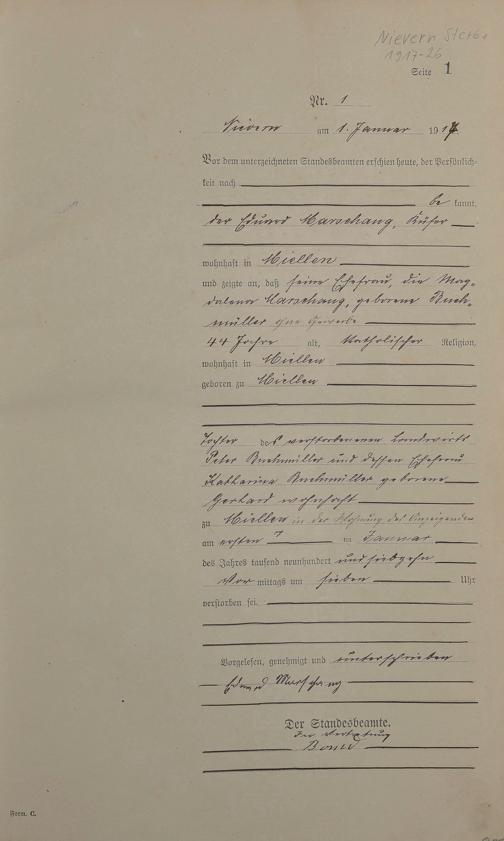 Nievern Sterbe
1917-26
Seite 1
Nr. 1
Nievern am 1. Januar 1917
Vor dem unterzeichneten Standesbeamten erschien heute, der Persönlich-
keit nach
be kannt,
der Eduard Marschang, Küfer
wohnhaft in Miellen
und zeigte an, daß seine Ehefrau, die Mag-
dalena Marschang, geborene Buch-
müller ohne Gewerbe
44 Jahre alt, katholischer Religion,
wohnhaft in Miellen
geboren zu Miellen
Tochter des verstorbenen Landwirts
Peter Buchmüller und dessen Ehefrau
Katharina Buchmüller geborene
Gerhard wohnhaft
zu Miellen in der Wohnung des Anzeigenden
am ersten Januar
des Jahres tausend neunhundert und siebzehn
Vor mittags um sieben Uhr
verstorben sei.
Vorgelesen, genehmigt und unterschrieben
Eduard Marschang
Der Standesbeamte.
In Vertretung
Form. C.